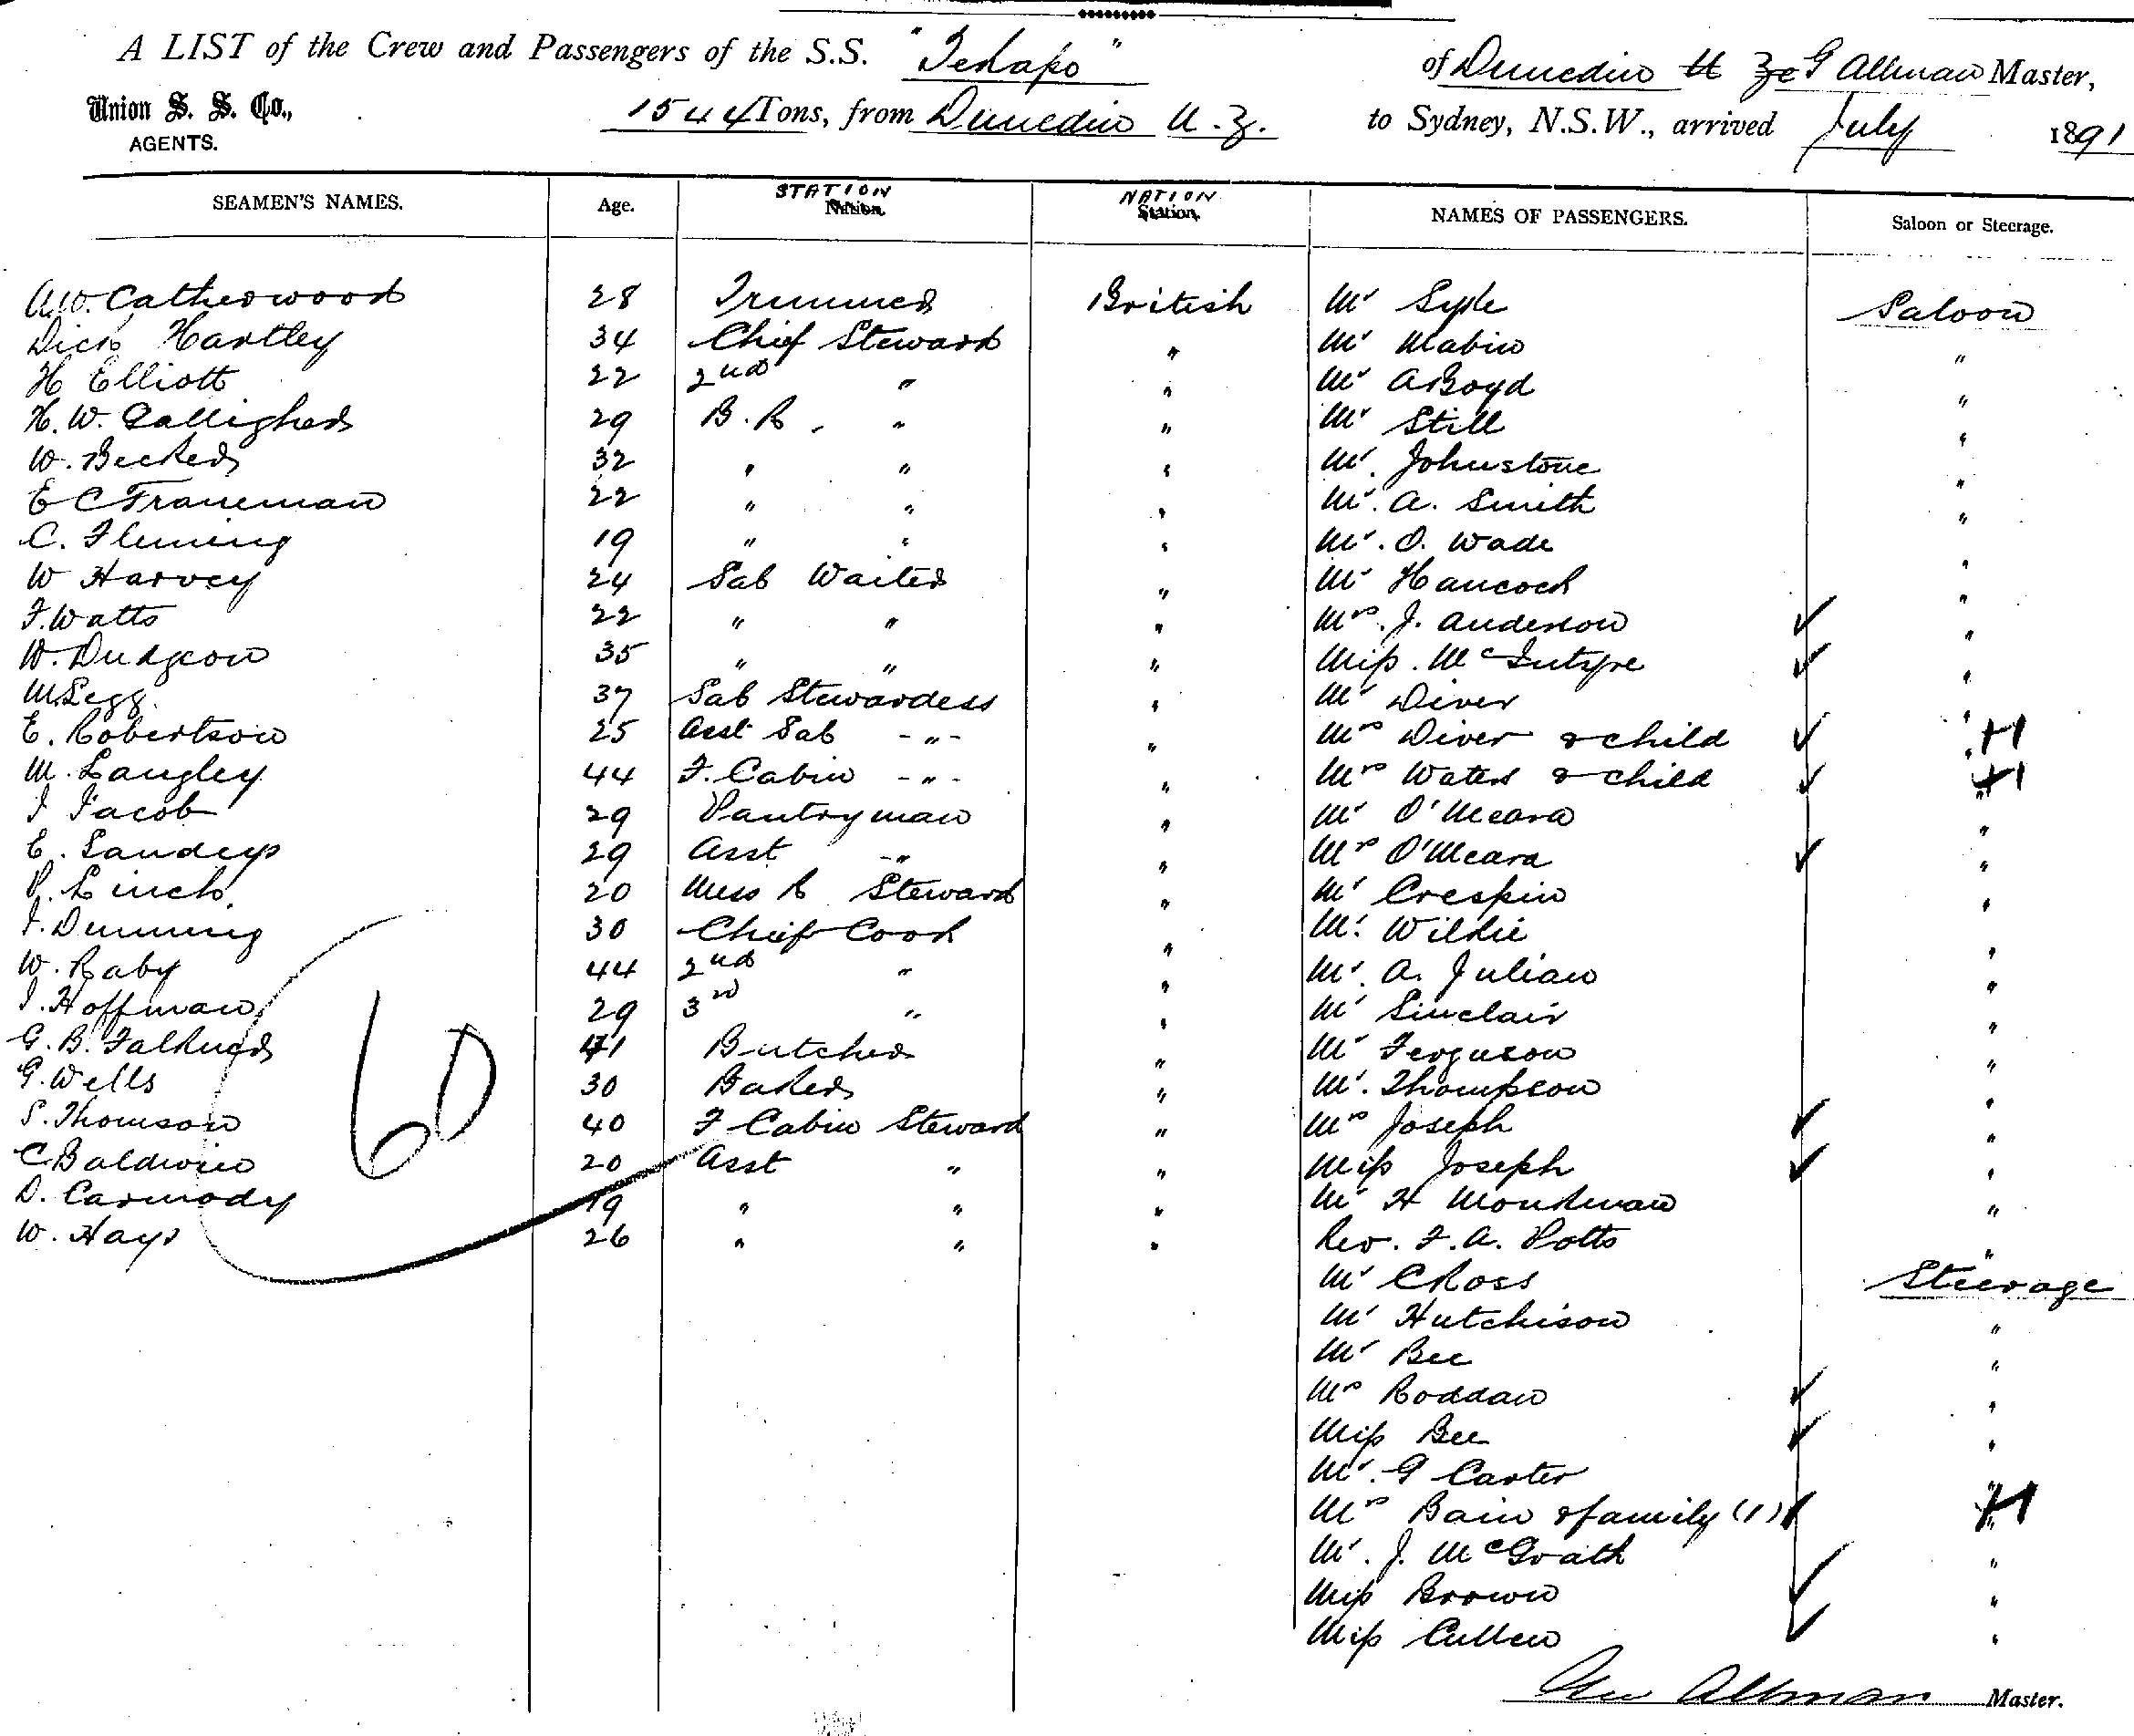 A LIST of the Crew and Passengers of the S.S. "Tekapo" of Dunedin G Allman Master,
Union S. S. Co.,
AGENTS.
1544 Tons, from Dunedin N.Z. to Sydney, N.S.W., arrived July 1891
SEAMEN'S NAMES. Age. STATION NATION NAMES OF PASSENGERS. Saloon or Steerage.
A.W. Catherwood 28 Trimmer British Mr Syde Saloon
Dick Hartley 34 Chief Steward " Mr Mabin "
H Elliott 22 2nd " " Mr A Boyd "
H. W. Gallagher 29 B. R. " " Mr Still "
W. Becker 32 " " " Mr. Johnstone "
E C Traneman 22 " " " Mr. A. Smith "
C. Fleming 19 " " " Mr. O. Wade "
W Harvey 24 Sal Waiter " Mr Hancock "
F. Watts 22 " " " Mrs. J. Anderson "
W. Dudgeon 35 " " " Miss. McIntyre "
M. Legg. 37 Sal Stewardess " Mr Diver "
E. Robertson 25 Asst Sal - " - " Mrs Diver & child " H
M. Langley 44 F. Cabin - " - " Mrs Waters & child " H
J Jacob 29 Pantryman " Mr O'Meara "
E. Sandeys 29 Asst - " " Mrs O'Meara "
P. Linch. 20 Mess R Steward " Mr Crespin "
J. Dunning 30 Chief Cook " Mr. Wilkie "
W. Raby 44 2nd " " Mr. A. Julian "
J. Hoffman 29 3rd " " Mr Sinclair "
G. B. Falkner 41 Butcher " Mr Ferguson "
G. Wells 30 Baker " Mr. Thompson "
S. Thomson 40 F Cabin Steward " Mrs Joseph "
C Baldwin 20 Asst " " Miss Joseph "
D. Carmody 19 " " " Mr H Monkman "
W. Hays 26 " " " Rev. F. A. Potts "
60
Mr C Ross Steerage
Mr Hutchison "
Mr Bee "
Mrs Roddan "
Miss Bee "
Mr. G Carter "
Mrs Bain & family (1) " H
Mr. J. McGrath "
Miss Brown "
Miss Cullen "
Geo Allman Master.